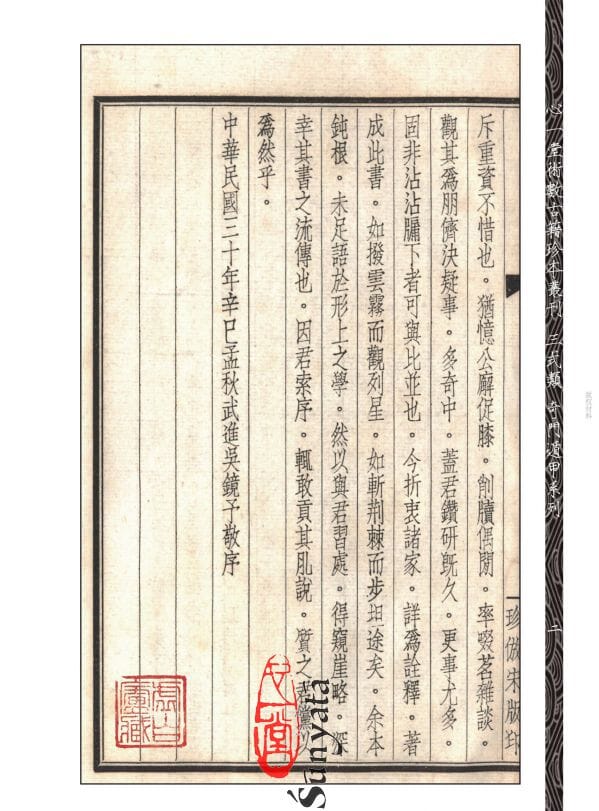 心一堂術數古籍珍本叢刊 三式類 奇門遁甲系列
二
珍倣宋版印
斥重資不惜也。猶憶公廨促膝。削牘偶閒。率啜茗雜談。
觀其爲朋儕決疑事。多奇中。蓋君鑽研旣久。更事尤多。
固非沾沾牖下者可與比並也。今折衷諸家。詳爲詮釋。著
成此書。如撥雲霧而觀列星。如斬荆棘而步坦途矣。余本
鈍根。未足語於形上之學。然以與君習處。得窺崖略。深
幸其書之流傳也。因君索序。輒敢貢其肊說。質之君儻以
爲然乎。
中華民國三十年辛巳孟秋武進吳鏡予敬序
虛白廬藏
心一堂
Sunyata